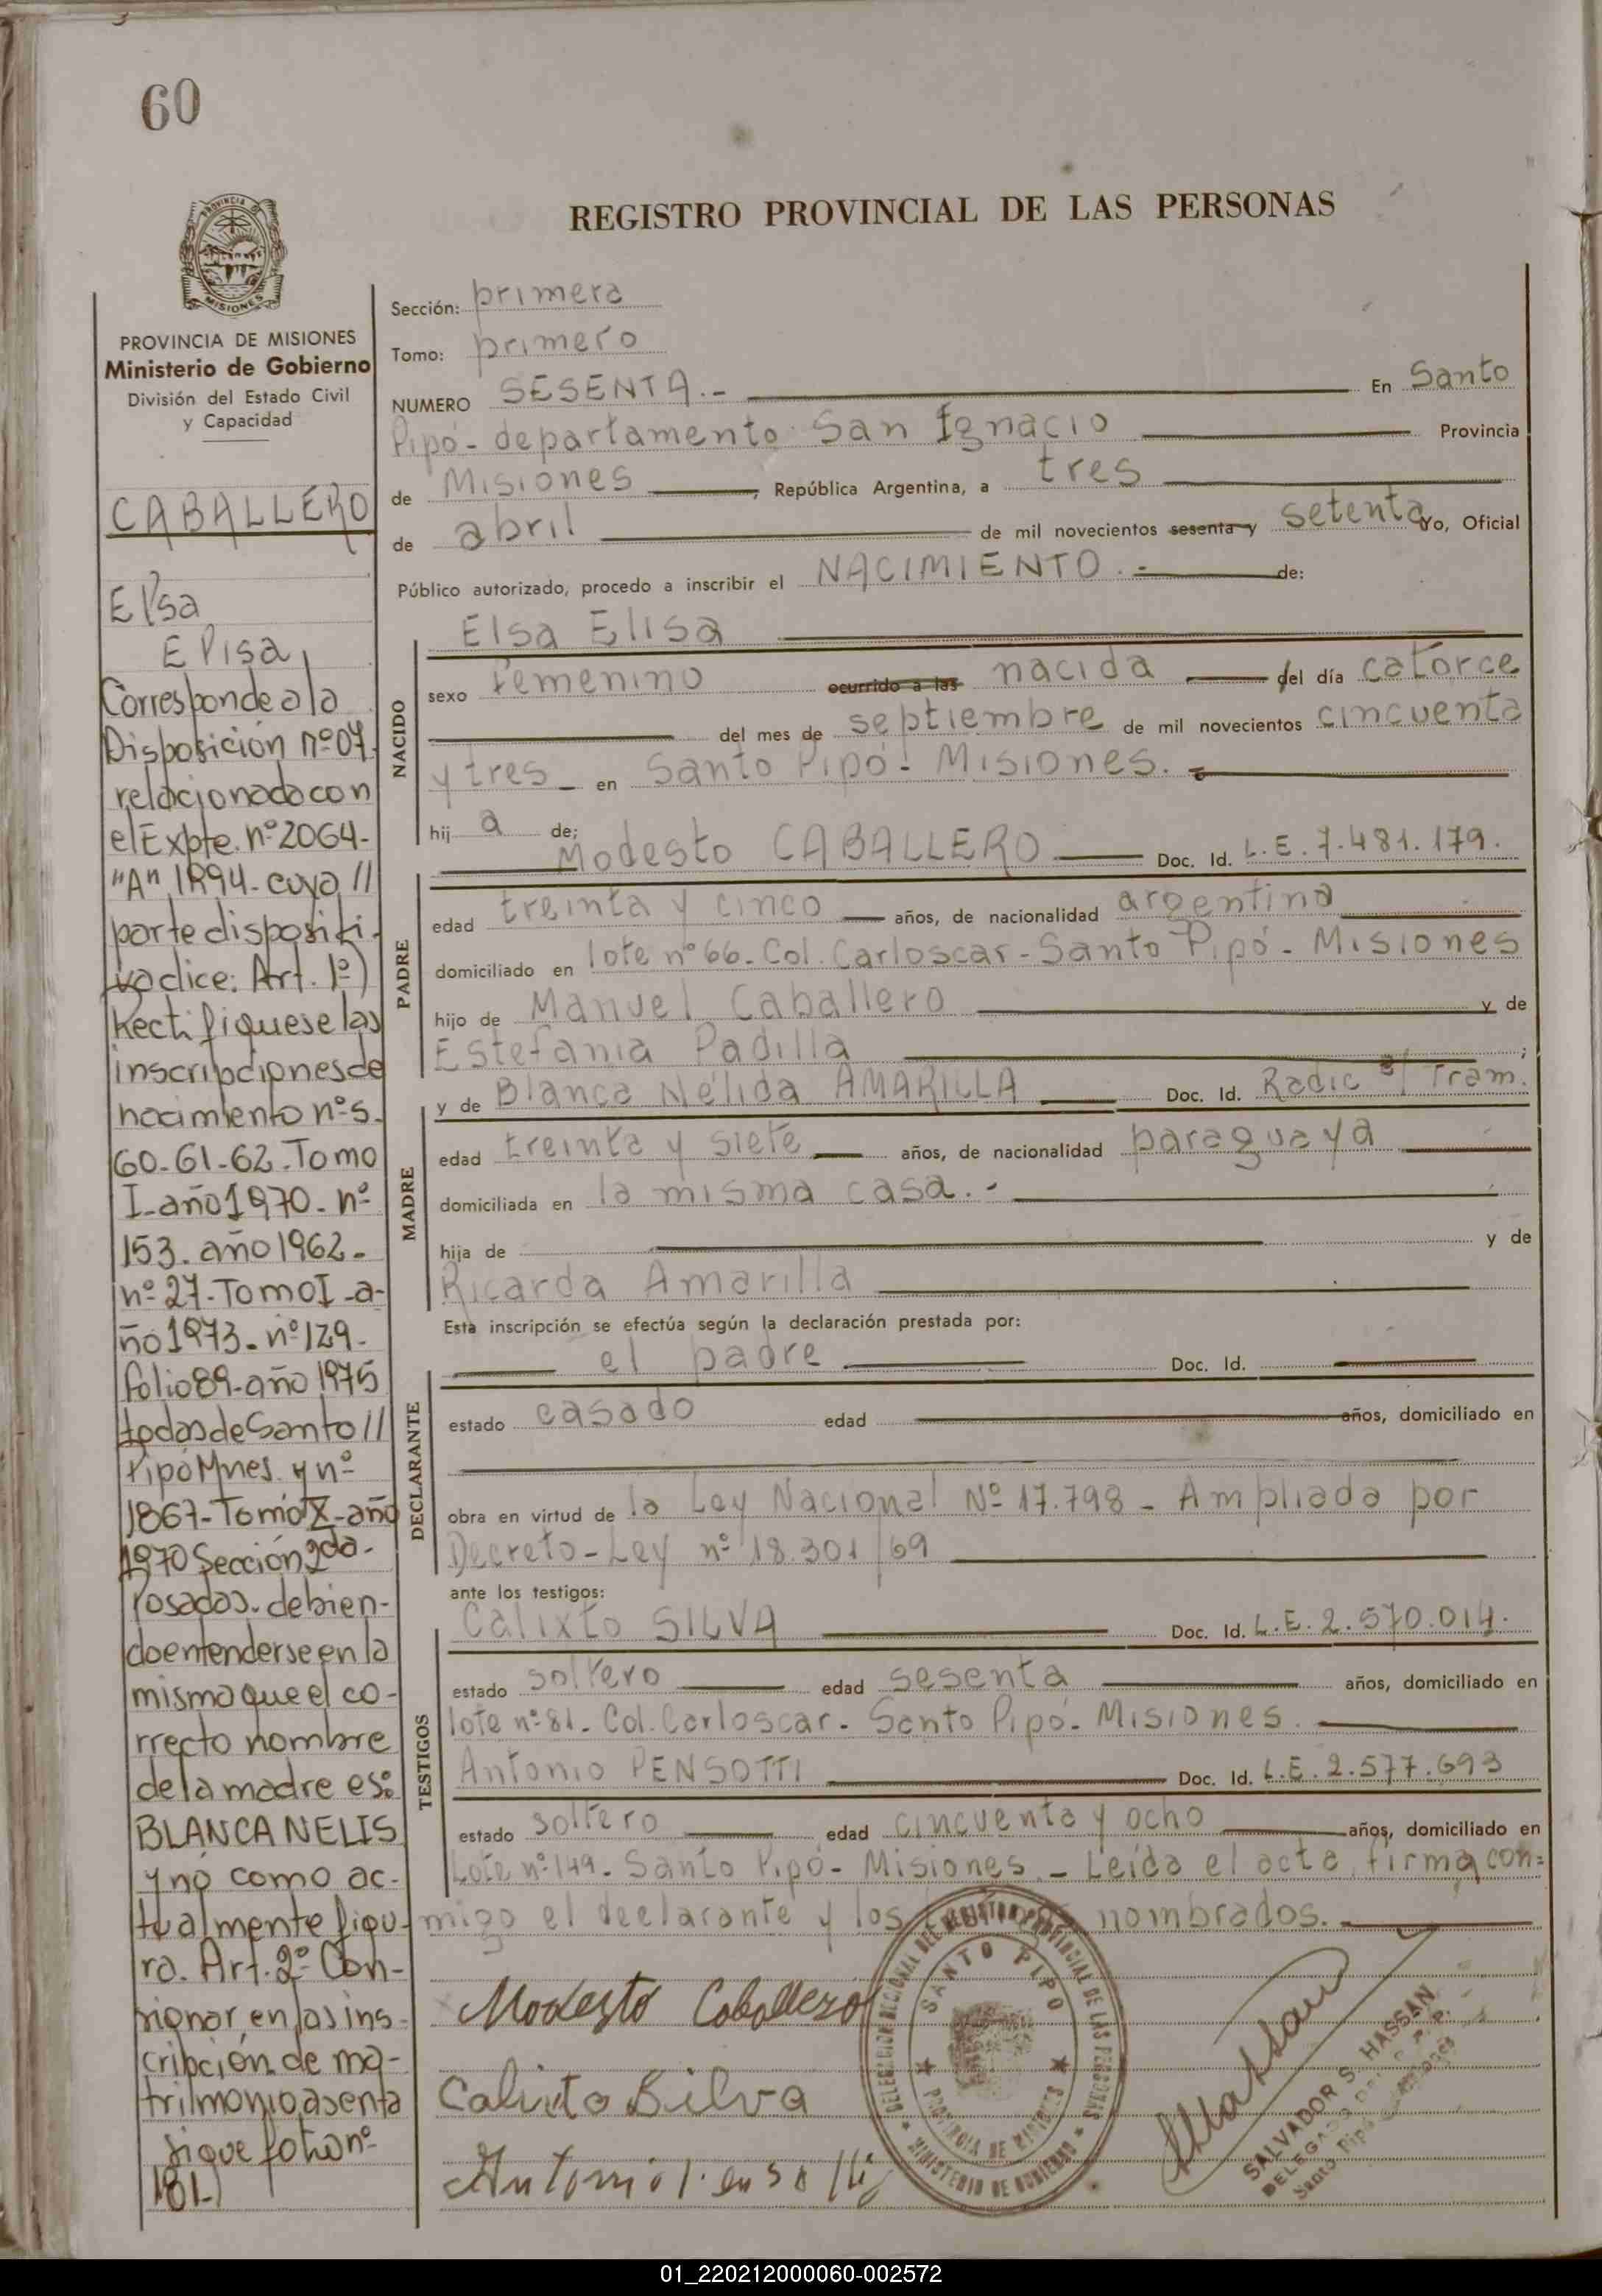 60
REGISTRO PROVINCIAL DE LAS PERSONAS
PROVINCIA
MISIONES
PROVINCIA DE MISIONES
Ministerio de Gobierno
División del Estado Civil
y Capacidad
CABALLERO
Elsa
Elisa
Corresponde a la
Disposición nº 07.
relacionada con
el Expte. nº 2064-
"A" 1994- cuya //
parte dispositi-
va dice: Art. 1º)
Rectifiquese las
inscripciones de
nacimiento nºs.
60-61-62. Tomo
I-año 1970- nº
153. año 1962-
nº 27-Tomo I-a-
ño 1973- nº 129-
folio 89-año 1975
todas de Santo //
Pipó Mnes. y nº
1867-Tomo X-año
1970 Sección 2da-
Posadas. debien-
do entenderse en la
misma que el co-
rrecto nombre
de la madre es:
BLANCA NELIS
y no como ac-
tualmente figu-
ra. Art. 2º Con-
signar en las ins-
cripción de ma-
trimonio asenta
sigue folio nº
181-
Sección: primera
Tomo: primero
NUMERO SESENTA.- En Santo
Pipó- departamento San Ignacio Provincia
de Misiones, República Argentina, a tres
de abril de mil novecientos sesenta y setenta Yo, Oficial
Público autorizado, procedo a inscribir el NACIMIENTO.- de:
NACIDO
Elsa Elisa
sexo femenino ocurrido a las nacida del día catorce
del mes de septiembre de mil novecientos cincuenta
y tres en Santo Pipó- Misiones.
hij a de;
PADRE
Modesto CABALLERO Doc. Id. L.E. 7.481.179.
edad treinta y cinco años, de nacionalidad argentina
domiciliado en lote nº 66- Col. Carloscar- Santo Pipó- Misiones
hijo de Manuel Caballero y de
Estefania Padilla ;
MADRE
y de Blanca Nélida AMARILLA Doc. Id. Radic e/ Tram.
edad treinta y siete años, de nacionalidad paraguaya
domiciliada en la misma casa.-
hija de y de
Ricarda Amarilla
Esta inscripción se efectúa según la declaración prestada por:
DECLARANTE
el padre Doc. Id.
estado casado edad años, domiciliado en
obra en virtud de la Ley Nacional Nº 17.798- Ampliada por
Decreto-Ley nº 18.301/69
ante los testigos:
TESTIGOS
Calixto SILVA Doc. Id. L.E. 2.570.014.
estado soltero edad sesenta años, domiciliado en
lote nº 81- Col. Carloscar- Santo Pipó- Misiones.
Antonio PENSOTTI Doc. Id. L.E. 2.577.693
estado soltero edad cincuenta y ocho años, domiciliado en
Lote nº 149- Santo Pipó- Misiones.- Leída el acta, firma con=
migo el declarante y los nombrados.
Modesto Caballero
Calixto Silva
Antonio Pensotti
DELEGACION REGIONAL DEL REGISTRO PROVINCIAL DE LAS PERSONAS
SANTO PIPO
PROVINCIA DE MISIONES
MINISTERIO DE GOBIERNO
SALVADOR S. HASSAN
DELEGADO
Santo Pipó
01_220212000060-002572